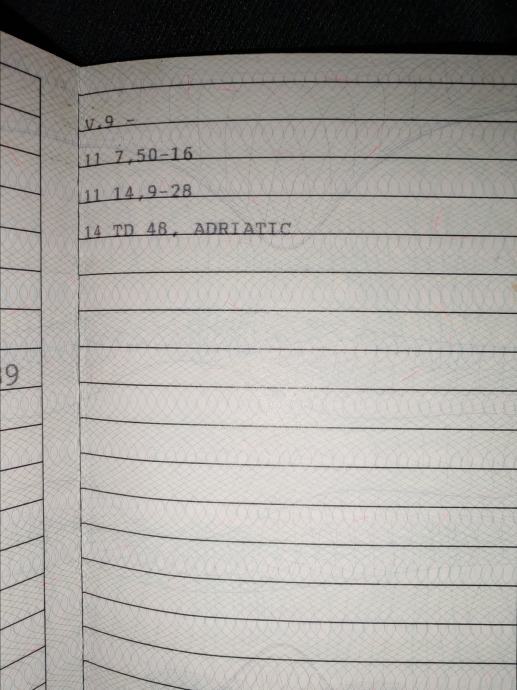 v.9 -
11 7,50-16
11 14,9-28
14 TD 48, ADRIATIC
9